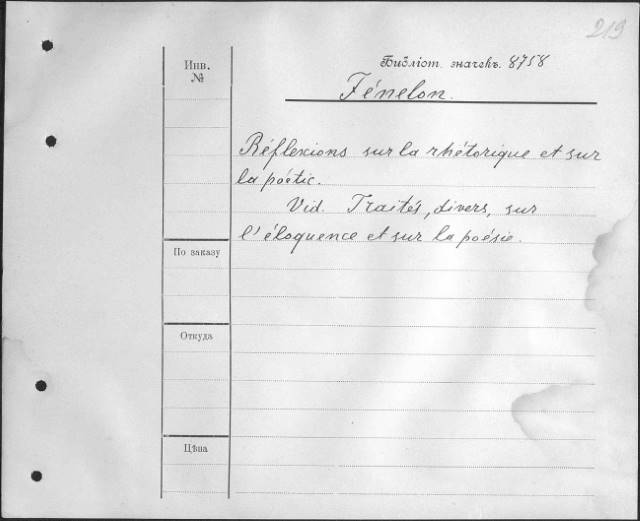 219
Инв.
№
Библіот. значекъ. 8758
Fénelon.
Réflexions sur la rhétorique et sur
la poétic.
Vid. Traités, divers, sur
l'éloquence et sur la poésie.
По заказу
Откуда
Цѣна